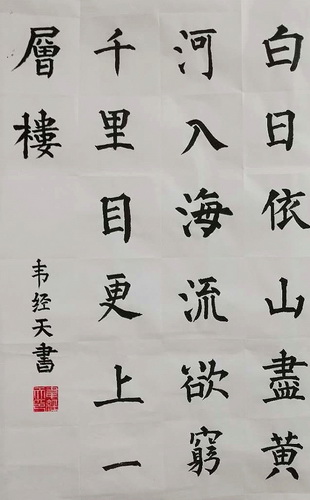 白日依山盡黄
河入海流欲窮
千里目更上一
層樓
韦经天書